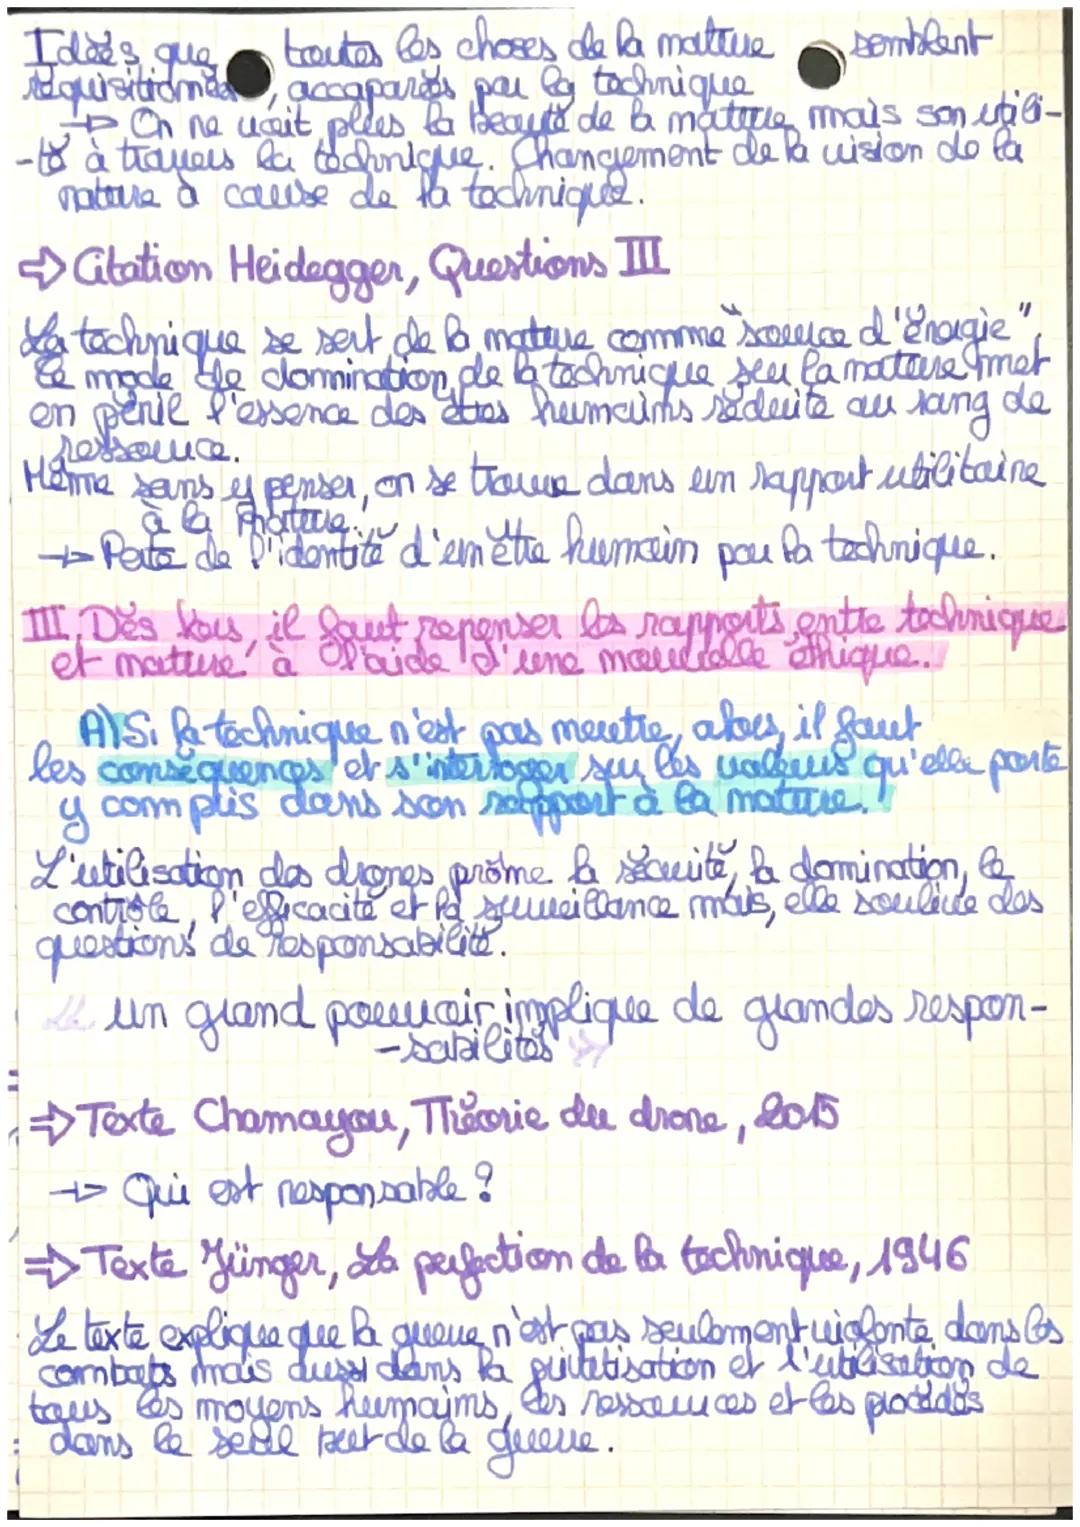 Idées que toutes les choses de la nature semblent
réquisitionnées, accaparées par la technique
→ On ne voit plus la beauté de la nature mais son utili-
-té à travers la technique. Changement de la vision de la
nature à cause de la technique.
⇒ Citation Heidegger, Questions III
La technique se sert de la nature comme "source d'énergie".
Ce mode de domination de la technique sur la nature met
en péril l'essence des êtres humains réduite au rang de
ressource.
Même sans y penser, on se trouve dans un rapport utilitaire
à la nature.
→ Perte de l'identité d'un être humain par la technique.
III, Dès lors, il faut repenser les rapports entre technique
et nature, à l'aide d'une nouvelle éthique.
A) Si la technique n'est pas neutre, alors, il faut
les conséquences et s'interroger sur les valeurs qu'elle porte
y compris dans son rapport à la nature.
L'utilisation des drones prône la sécurité, la domination, le
contrôle, l'efficacité et la surveillance mais, elle soulève des
questions de responsabilité.
" un grand pouvoir implique de grandes respon-
-sabilités "
⇒ Texte Chamayou, Théorie du drone, 2015
→ Qui est responsable ?
⇒ Texte Jünger, La perfection de la technique, 1946
Le texte explique que la guerre n'est pas seulement violente dans les
combats mais aussi dans la et l'utilisation de
tous les moyens humains, les ressources et les procédés
dans le seul but de la guerre.